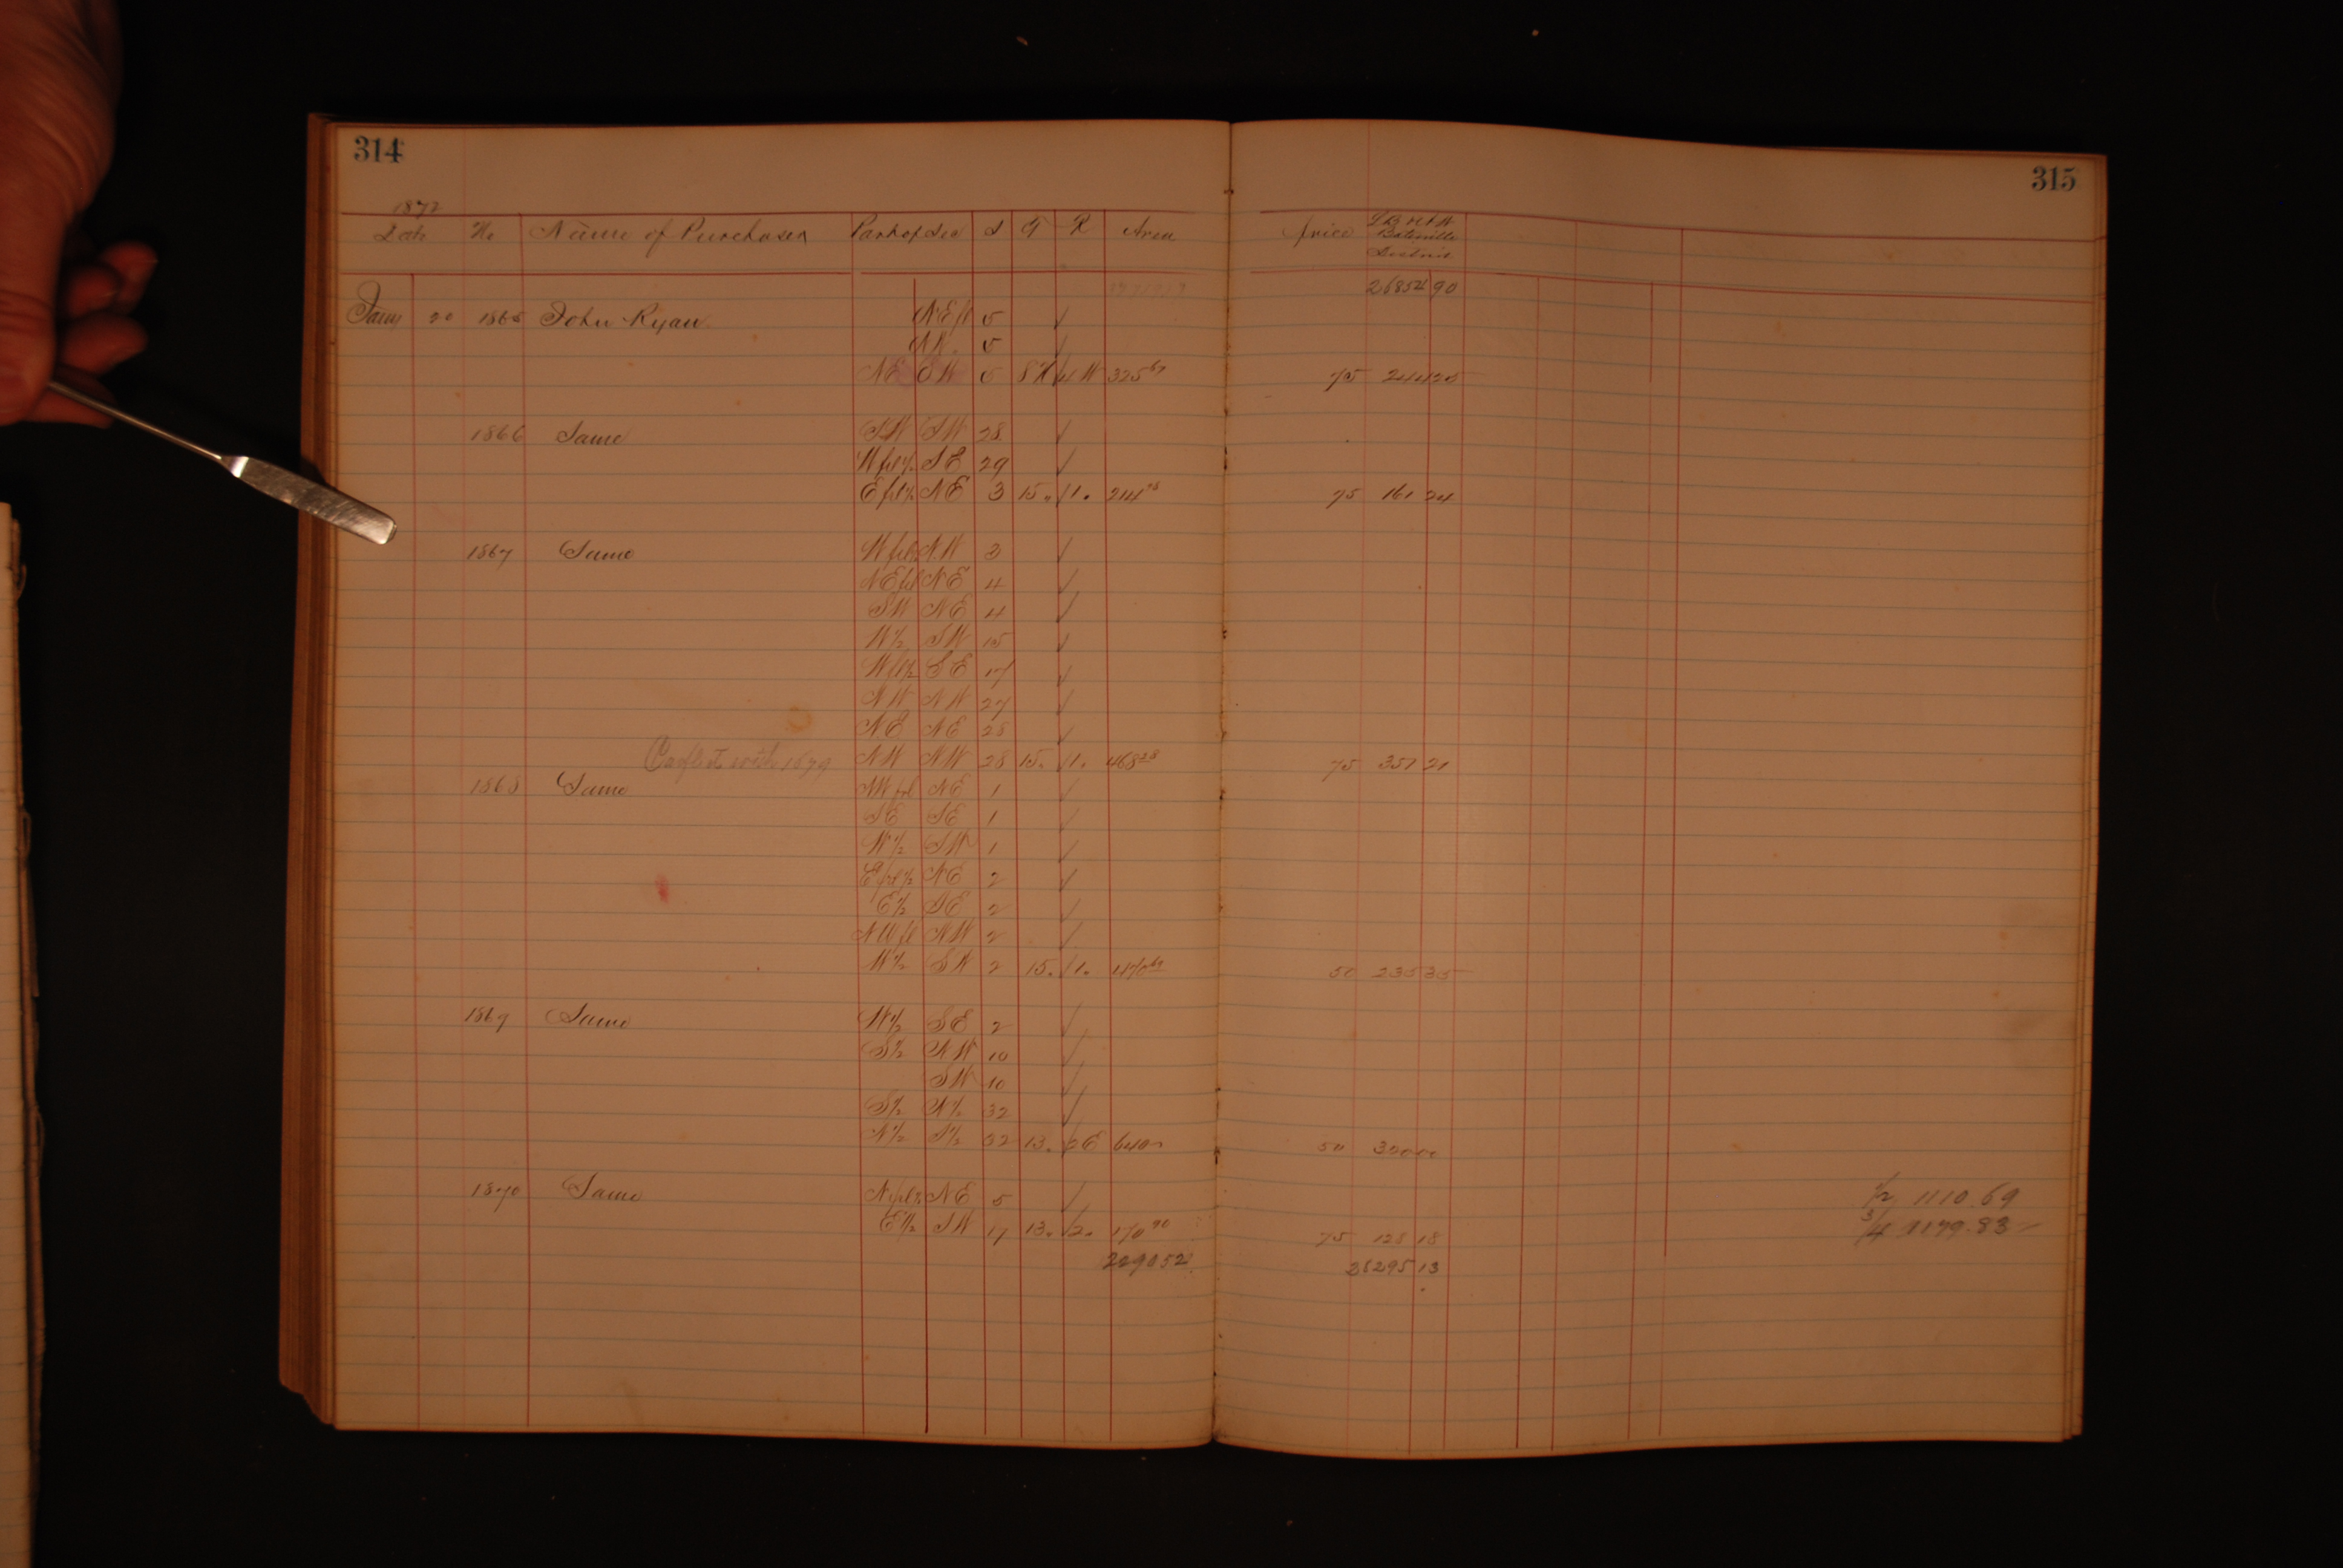 314
315
1872
Date No Name of Purchaser Part of Sec S T R Area price Batesville District
26854 90
Jany 20 1865 John Ryan NE fl 5 ✓
NW. 5 ✓
NE SW 5 8 N 4 W 325 67 75 244 25
1866 Same SW SW 28 ✓
W frl ½ SE 29 ✓
E frl ½ NE 3 15. 1. 214 98 75 161 24
1867 Same W frl ½ NW 3 ✓
NE frl NE 4 ✓
SW NE 4 ✓
W ½ SW 15 ✓
W frl ½ SE 17 ✓
NW NW 27 ✓
NE NE 28 ✓
Conflict with 1679 NW NW 28 15. 1. 468 28 75 351 21
1868 Same NW frl NE 1 ✓
SE SE 1 ✓
W ½ SW 1 ✓
E frl ½ NE 2 ✓
E ½ SE 2 ✓
NW fl NW 2 ✓
W ½ SW 2 15. 1. 470 69 50 235 35
1869 Same W ½ SE 2 ✓
S ½ NW 10 ✓
SW 10 ✓
S ½ N ½ 32 ✓
N ½ S ½ 32 13. 2 E 640 50 320 00
1870 Same N frl ½ NE 5 ✓
½ 1110.69
E ½ SW 17 13. 2. 170 90 75 128 18
¾ 1179.83
2290 52 28295 13